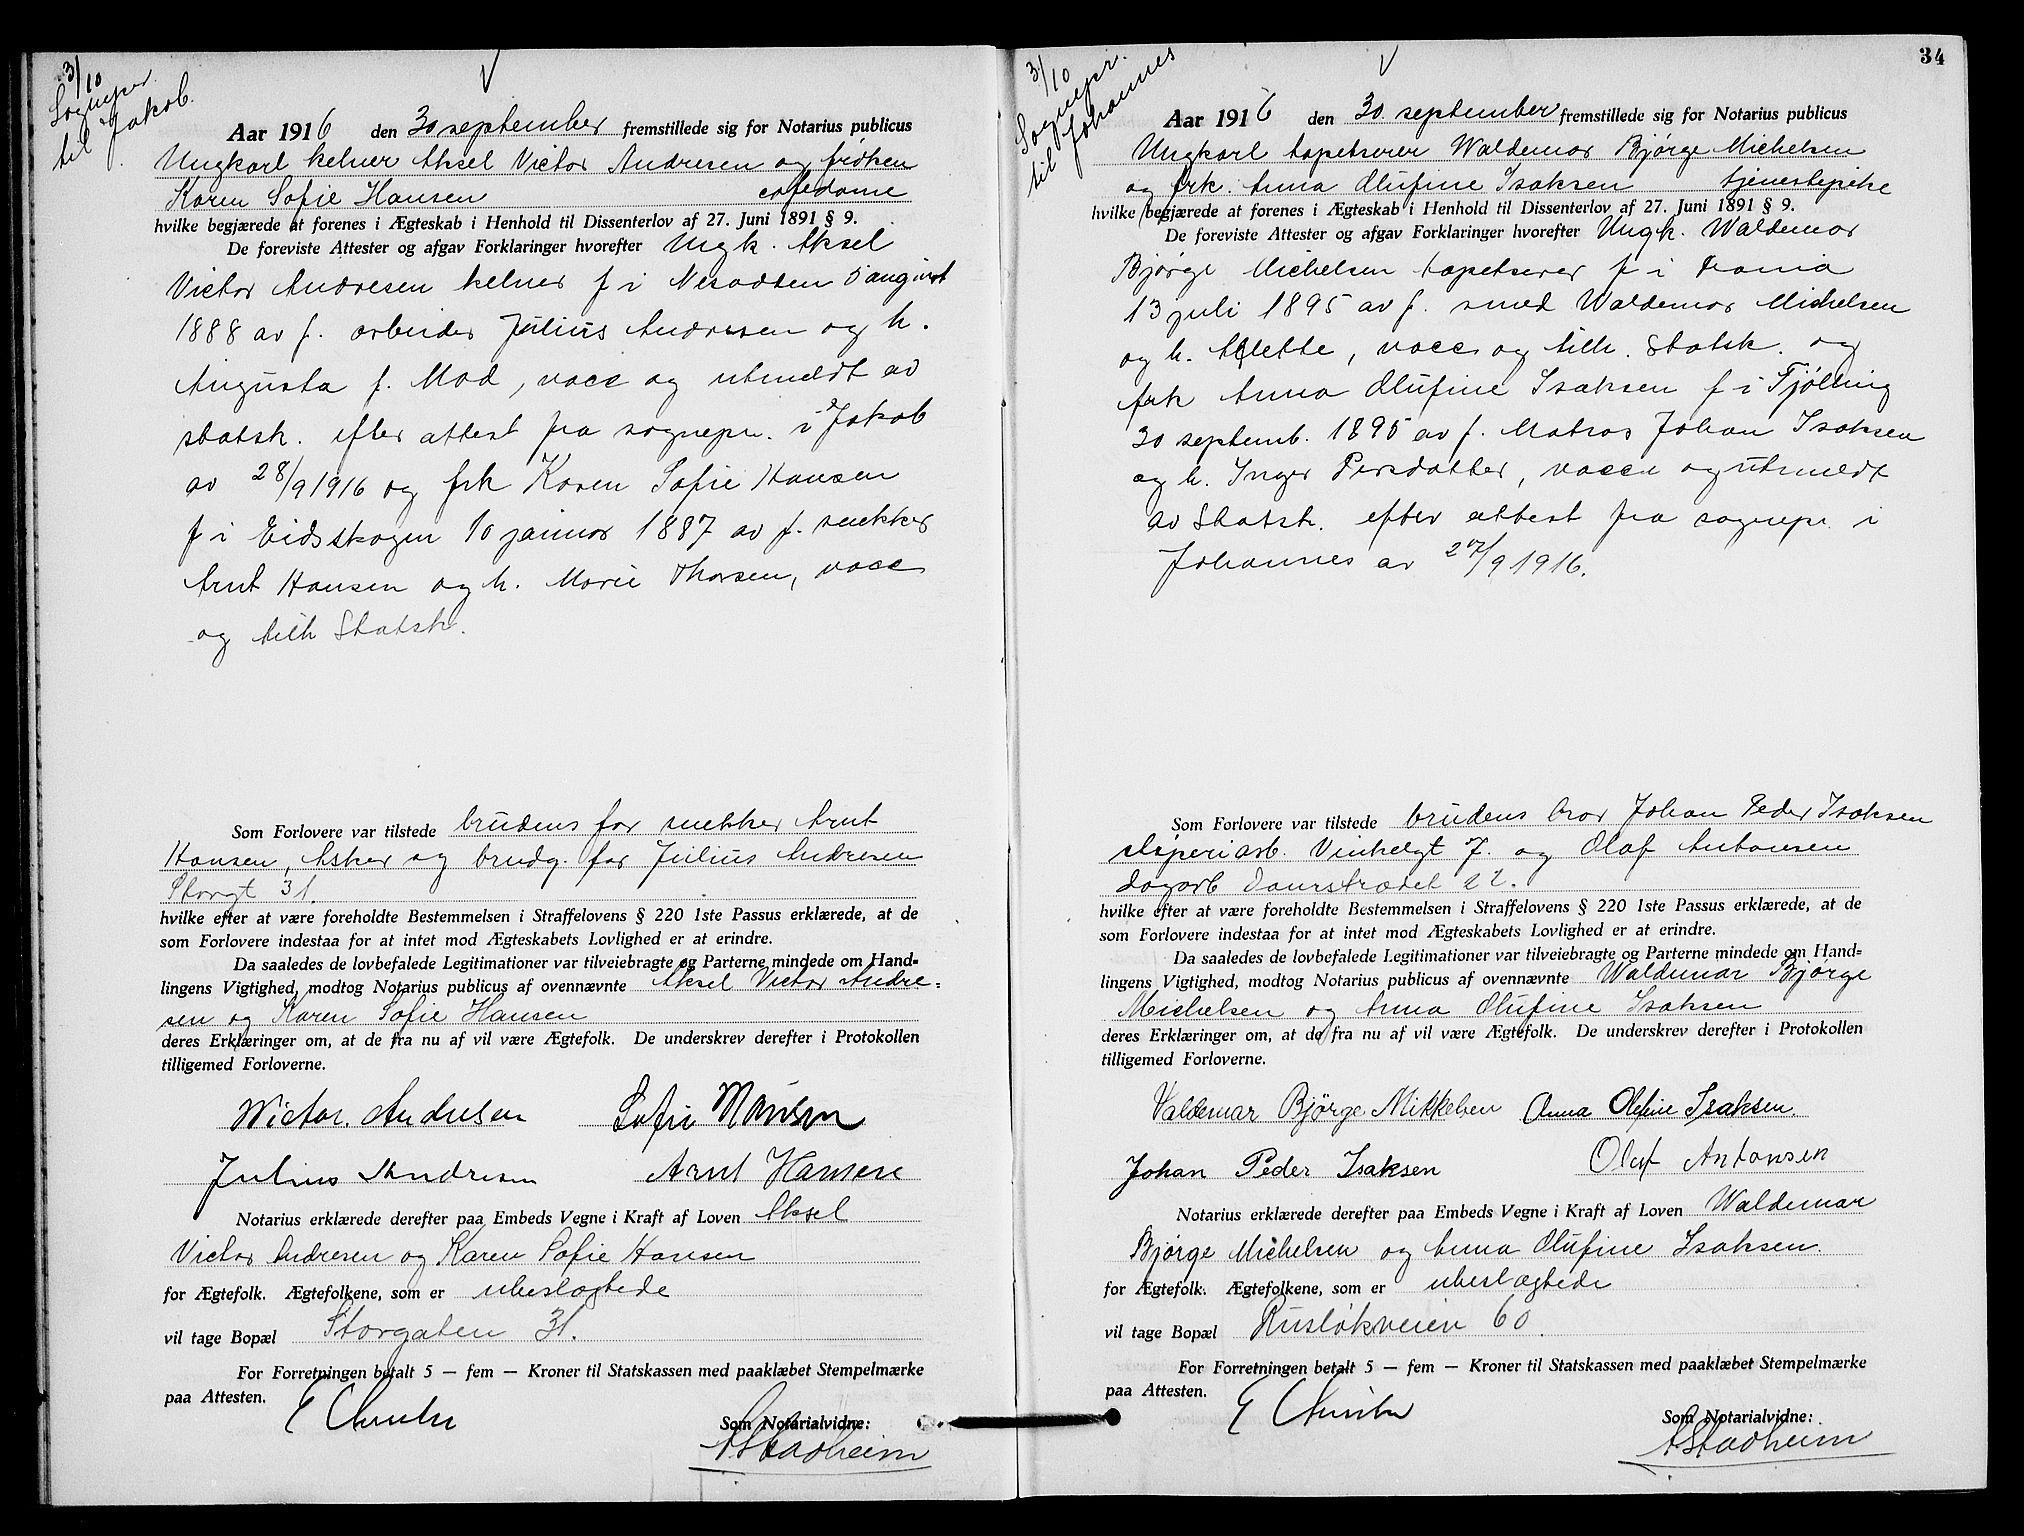 3/10
Sognepr.
til Jakob.
Aar 1916 den 30 september fremstillede sig for Notarius publicus
Ungkarl kelner Aksel Victor Andresen og frøken
Karen Sofie Hansen cafedame
hvilke begjærede at forenes i Ægteskab i Henhold til Dissenterlov af 27. Juni 1891 § 9.
De foreviste Attester og afgav Forklaringer hvorefter Ungk. Aksel
Victor Andresen kelner f i Nesodden 5 august
1888 av f. arbeider Julius Andresen og h.
Augusta f. Mod, vacc og utmeldt av
statsk. efter attest fra sognepr. i Jakob
av 28/9 1916 og frk Karen Sofie Hansen
f i Eidsskogen 10 januar 1887 av f. snekker
Arnt Hansen og h. Marie Thorsen, vacc
og tilh Statsk.
Som Forlovere var tilstede brudens far snekker Arnt
Hansen, Asker og brudg. far Julius Andresen
Storgt 31.
hvilke efter at være foreholdte Bestemmelsen i Straffelovens § 220 1ste Passus erklærede, at de
som Forlovere indestaa for at intet mod Ægteskabets Lovlighed er at erindre.
Da saaledes de lovbefalede Legitimationer var tilveiebragte og Parterne mindede om Hand-
lingens Vigtighed, modtog Notarius publicus af ovennævnte Aksel Victor Andre-
sen og Karen Sofie Hansen
deres Erklæringer om, at de fra nu af vil være Ægtefolk. De underskrev derefter i Protokollen
tilligemed Forloverne.
Wictor. Andresen Sofie Hansen
Julius Andresen Arnt Hansen
Notarius erklærede derefter paa Embeds Vegne i Kraft af Loven Aksel
Victor Andresen og Karen Sofie Hansen
for Ægtefolk. Ægtefolkene, som er ubeslægtede
vil tage Bopæl Storgaten 31.
For Forretningen betalt 5 — fem — Kroner til Statskassen med paaklæbet Stempelmærke
paa Attesten.
Som Notarialvidne:
AStadheim
34
3/10
Sognepr.
til Johannes
Aar 1916 den 30 september fremstillede sig for Notarius publicus
Ungkarl tapetserer Waldemar Bjørge Michelsen
og frk. Anna Olufine Isaksen tjenestepike
hvilke begjærede at forenes i Ægteskab i Henhold til Dissenterlov af 27. Juni 1891 § 9.
De foreviste Attester og afgav Forklaringer hvorefter Ungk. Waldemar
Bjørge Michelsen tapetserer f i
13 juli 1895 av f. smed Waldemar Michelsen
og h. Alette, vacc og tilh. Statsk. og
frk Anna Olufine Isaksen f i Tjølling
30 septemb. 1895 av f. Matros Johan Isaksen
og h. Inger Persdatter, vacc og utmeldt
av Statsk. efter attest fra sognepr. i
Johannes av 27/9 1916.
Som Forlovere var tilstede brudens bror Johan Peder Isaksen
sliperiarb. Vinkelgt 7. og Olaf Antonsen
dagarb 22.
hvilke efter at være foreholdte Bestemmelsen i Straffelovens § 220 1ste Passus erklærede, at de
som Forlovere indestaa for at intet mod Ægteskabets Lovlighed er at erindre.
Da saaledes de lovbefalede Legitimationer var tilveiebragte og Parterne mindede om Hand-
lingens Vigtighed, modtog Notarius publicus af ovennævnte Waldemar Bjørge
Michelsen og Anna Olufine Isaksen
deres Erklæringer om, at de fra nu af vil være Ægtefolk. De underskrev derefter i Protokollen
tilligemed Forloverne.
Valdemar Bjørge Mikkelsen Anna Olefine Isaksen.
Johan Peder Isaksen Olaf Antonsen
Notarius erklærede derefter paa Embeds Vegne i Kraft af Loven Waldemar
Bjørge Michelsen og Anna Olufine Isaksen.
for Ægtefolk. Ægtefolkene, som er ubeslægtede
vil tage Bopæl Ruseløkveien 60.
For Forretningen betalt 5 — fem — Kroner til Statskassen med paaklæbet Stempelmærke
paa Attesten.
Som Notarialvidne:
AStadheim